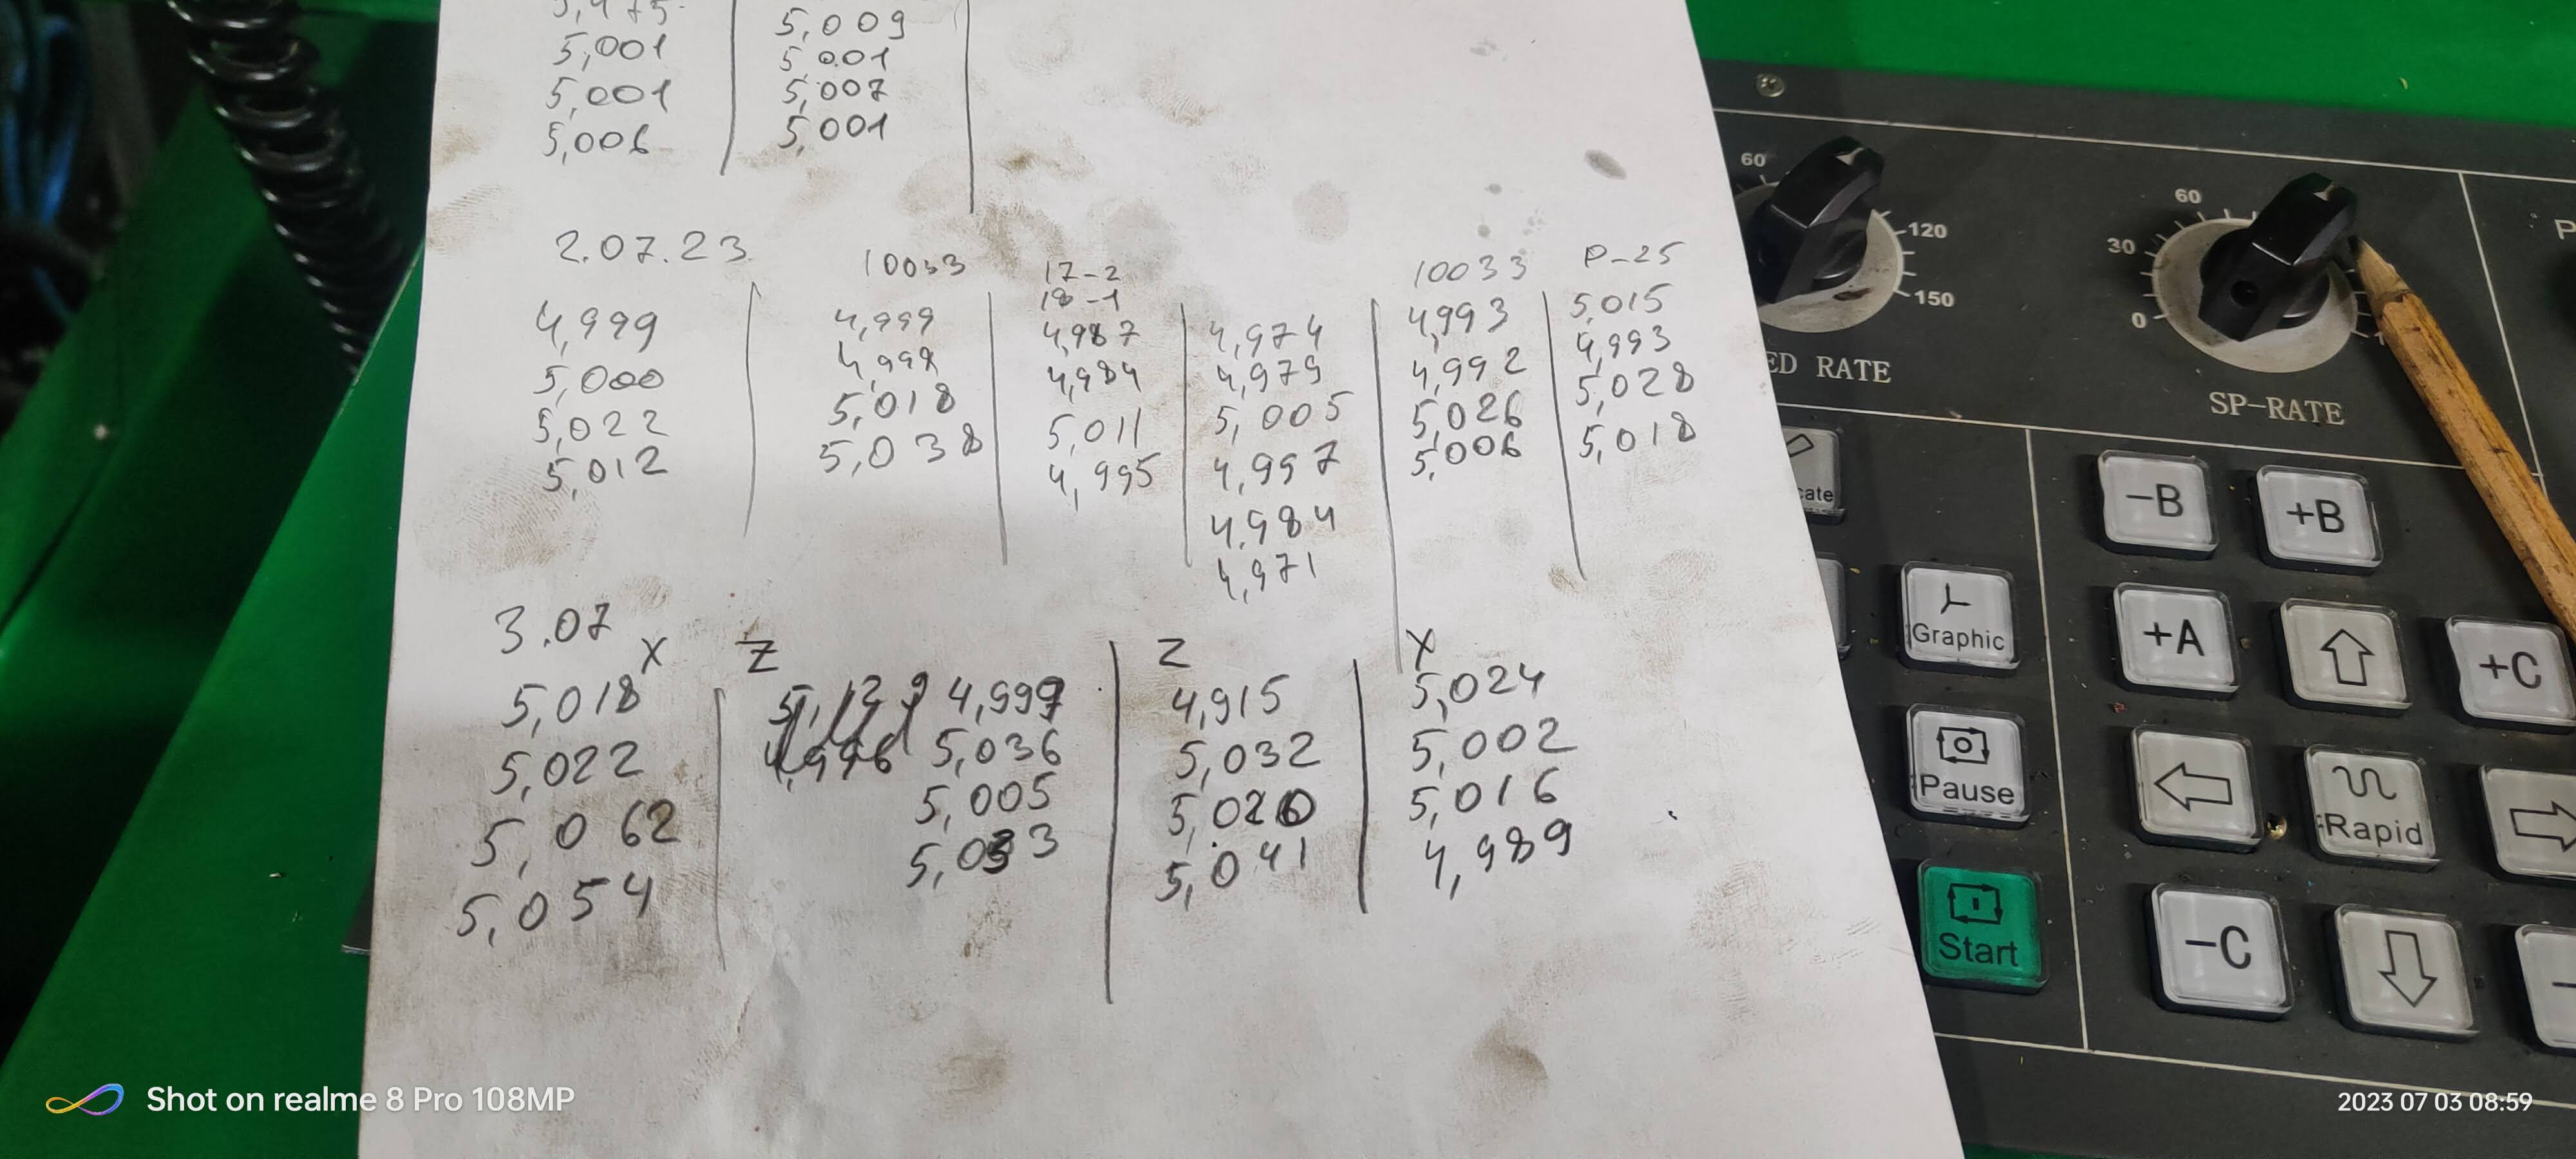 5,009
5,001 5,001
5,001 5,007
5,006 5,001
2.07.23 10033 17-2 10033 P-25
18-1
4,999 4,999 4,987 4,974 4,993 5,015
5,000 4,998 4,984 4,979 4,992 4,993
5,022 5,018 5,011 5,005 5,026 5,028
5,012 5,038 4,995 4,997 5,006 5,018
4,984
4,971
3.07
X Z Z X
5,018 4,999 4,915 5,024
5,022 5,036 5,032 5,002
5,062 5,005 5,020 5,016
5,054 5,033 5,041 4,989
60 120 150
ED RATE
0 30 60
SP-RATE
cate
-B +B
Graphic +A +C
Pause Rapid
Start -C
Shot on realme 8 Pro 108MP
2023 07 03 08:59